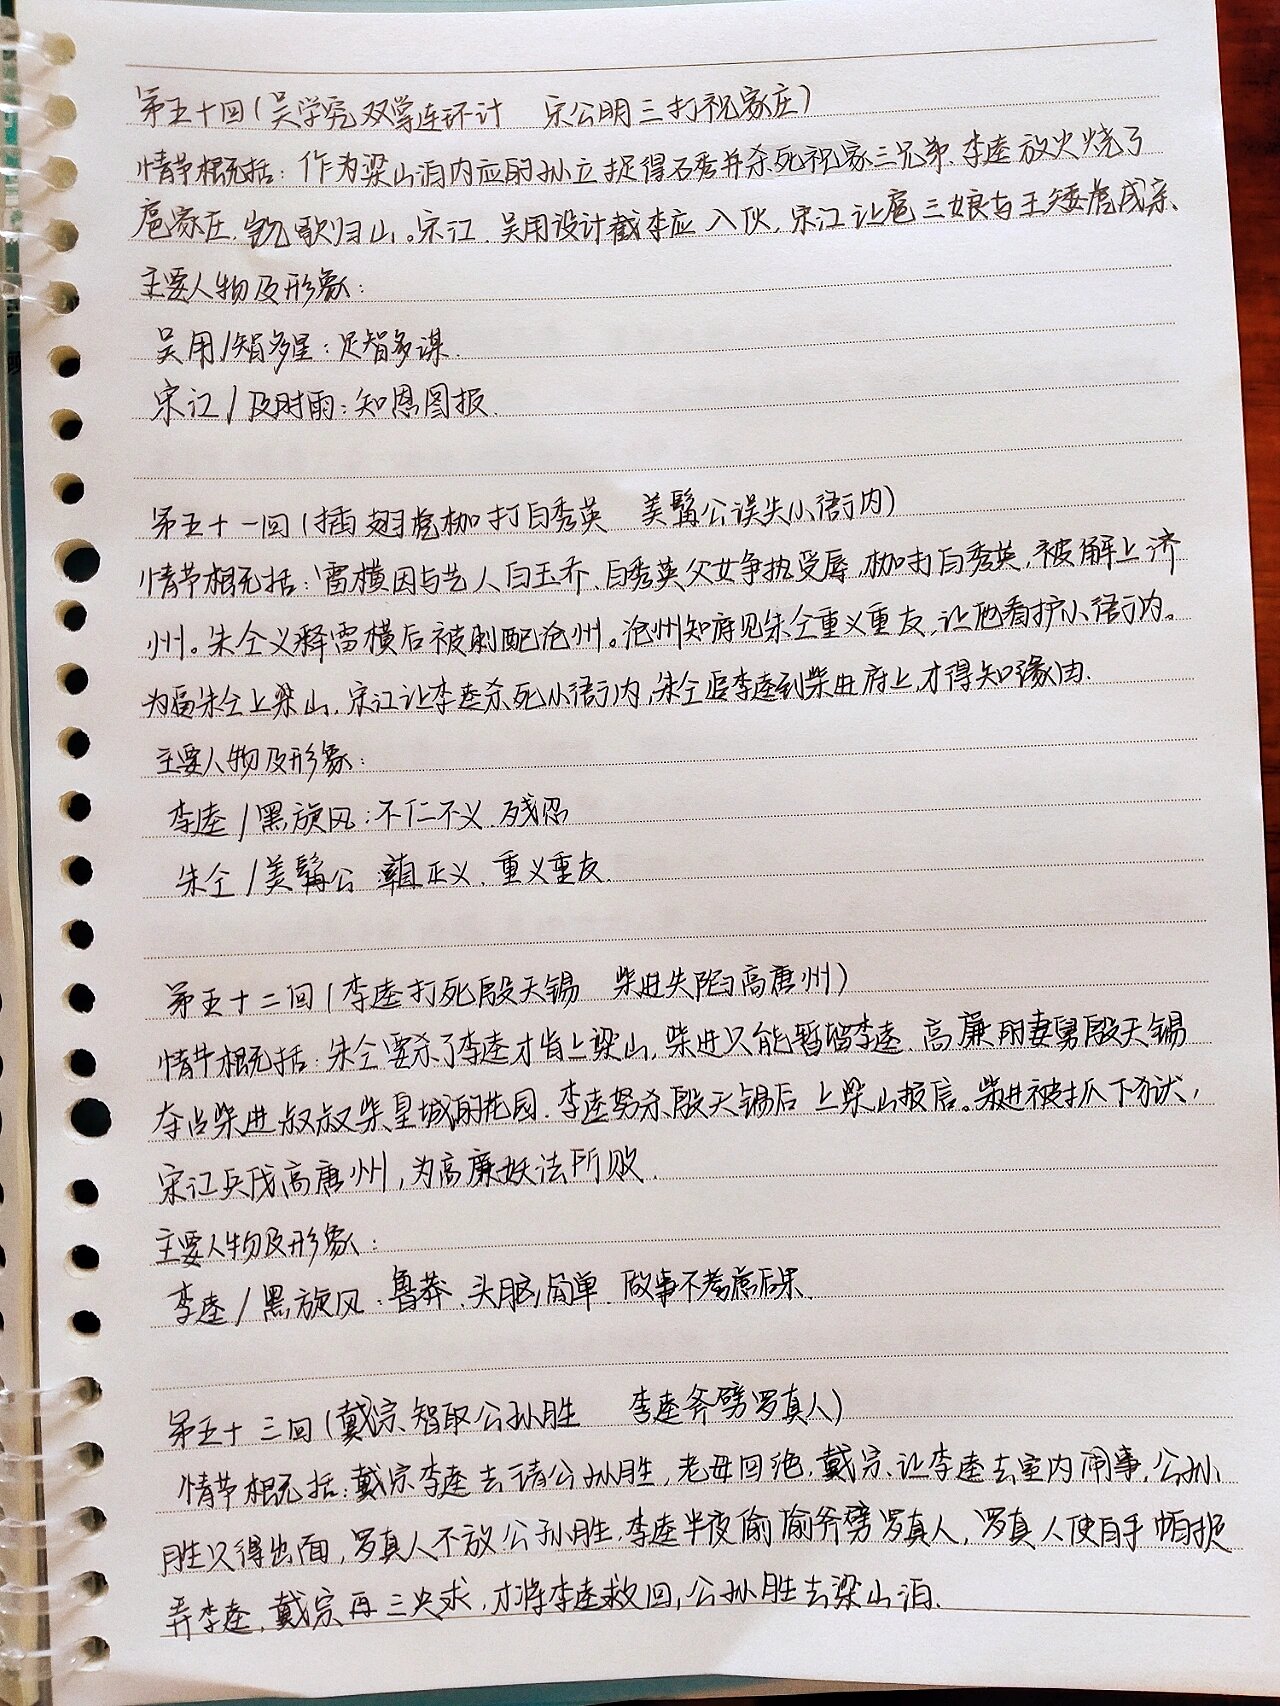 第五十回(吴学究双掌连环计 宋公明三打祝家庄)
情节概括:作为梁山泊内应的孙立捉得石秀并杀死祝家三兄弟.李逵放火烧了
扈家庄,凯歌归山。宋江、吴用设计截李应入伙,宋江让扈三娘与王矮虎成亲、
主要人物及形象:
吴用/智多星:足智多谋.
宋江/及时雨:知恩图报.
第五十一回(插翅虎枷打白秀英 美髯公误失小衙内)
情节概括:雷横因与艺人白玉乔、白秀英父女争执受辱,枷打白秀英,被解上济
州。朱仝义释雷横后被刺配沧州。沧州知府见朱仝重义重友,让他看护小衙内。
为逼朱仝上梁山,宋江让李逵杀死小衙内,朱仝追李逵到柴进府上,才得知缘由.
主要人物及形象:
李逵/黑旋风:不仁不义.残忍
朱仝/美髯公 正义.重义重友.
第五十二回(李逵打死殷天锡 柴进失陷高唐州)
情节概括:朱仝要杀了李逵才肯上梁山,柴进只能暂留李逵.高廉用妻舅殷天锡
夺占柴进叔叔柴皇城的花园.李逵怒杀殷天锡后上梁山报信。柴进被抓下狱,
宋江兵伐高唐州,为高廉妖法所败.
主要人物及形象:
李逵/黑旋风:鲁莽、头脑简单.做事不考虑后果.
第五十三回(戴宗智取公孙胜 李逵斧劈罗真人)
情节概括:戴宗李逵去请公孙胜,老母回绝,戴宗让李逵去室内闹事,公孙
胜只得出面,罗真人不放公孙胜.李逵半夜偷偷斧劈罗真人,罗真人使用手帕捉
弄李逵,戴宗再三央求,才将李逵救回,公孙胜去梁山泊.